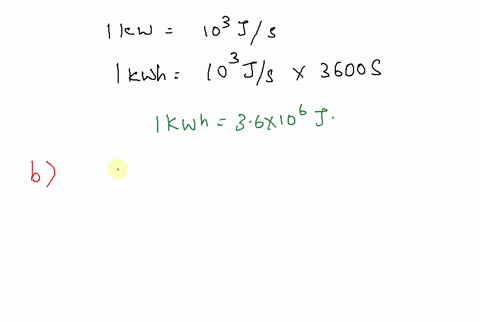 1 kw = 10³ J/s
1 kwh = 10³ J/s × 3600 S
1 kwh = 3.6×10⁶ J.
b)